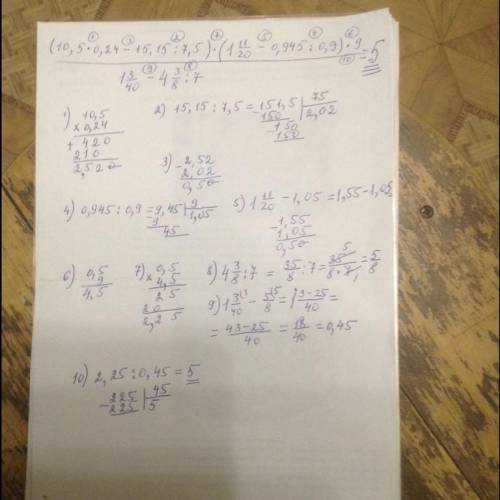 (10,5 · 0,24 − 15,15 : 7,5) · (1 11/20 − 0,945 : 0,9) · 9 = 5
1 3/40 − 4 3/8 : 7
1) 10,5
× 0,24
+ 420
210
2,520
2) 15,15 : 7,5 = 151,5 | 75
− 150 | 2,02
− 150
150
3) − 2,52
2,02
0,50
4) 0,945 : 0,9 = 9,45 | 9
9 | 1,05
45
5) 1 11/20 − 1,05 = 1,55 − 1,05
− 1,55
1,05
0,50
6) 0,5
9
4,5
7) 0,5
× 4,5
2 5
20
2,2 5
8) 4 3/8 : 7 = 35/8 : 7 = 35 5/8 · 7 1 = 5/8
9) 1 3/40 − 5/8 = 1 3−25/40 =
= 43−25/40 = 18/40 = 0,45
10) 2,25 : 0,45 = 5
− 225 | 45
225 | 5